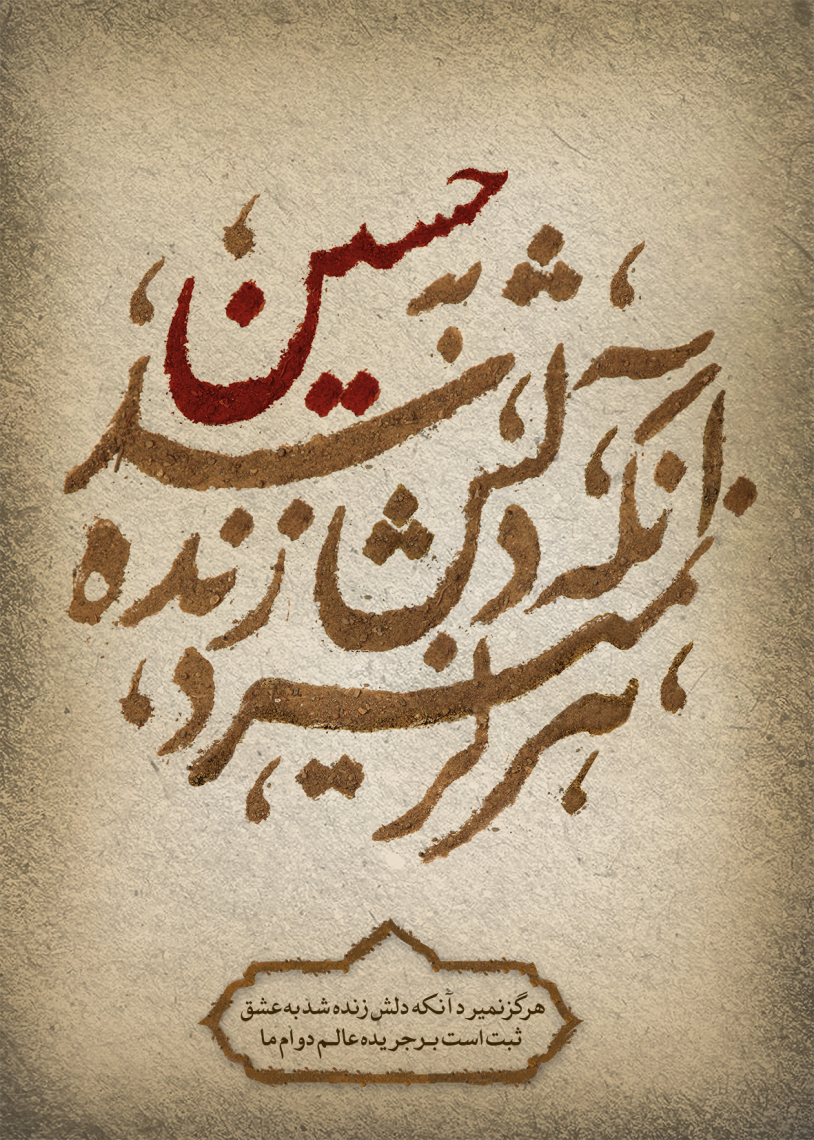 هرگز نمیرد
آنکه دلش زنده
شد به
حسین
هرگز نمیرد آنکه دلش زنده شد به عشق
ثبت است بر جریده عالم دوام ما